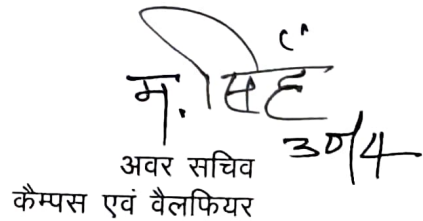 म. सिंह
30/4
अवर सचिव
कैम्पस एवं वैलफियर